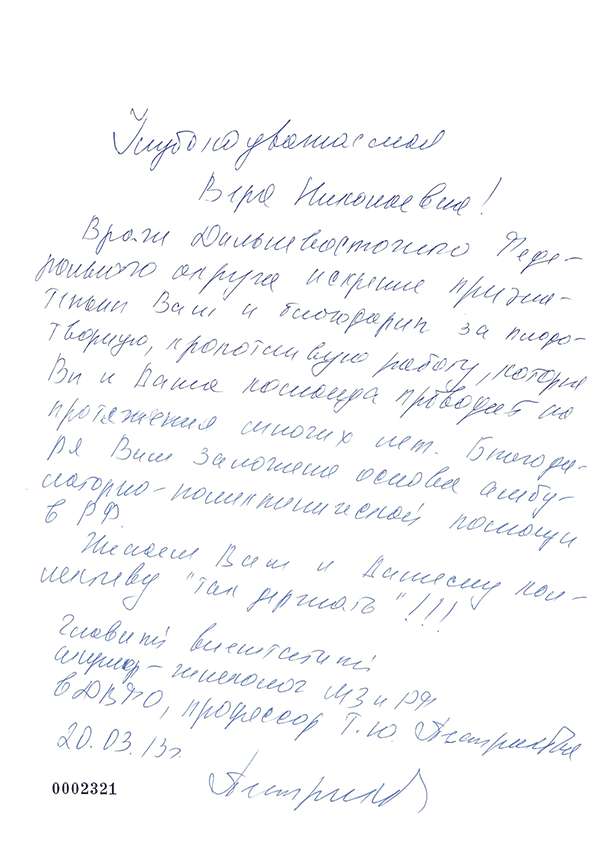 Глубокоуважаемая
Вера Николаевна!
Врачи Дальневосточного Феде-
рального округа искренне призна-
тельны Вам и благодарны за плодо-
творную, кропотливую работу, которую
Вы и Ваша команда проводит на
протяжении многих лет. Благода-
ря Вам заложена основа амбу-
латорно-поликлинической помощи
в РФ.
Желаем Вам и Вашему кол-
лективу "так держать"!!!
Главный внештатный
акушер-гинеколог МЗ и РФ
в ДВФО, профессор Т.Ю.
20.03.13г.
0002321